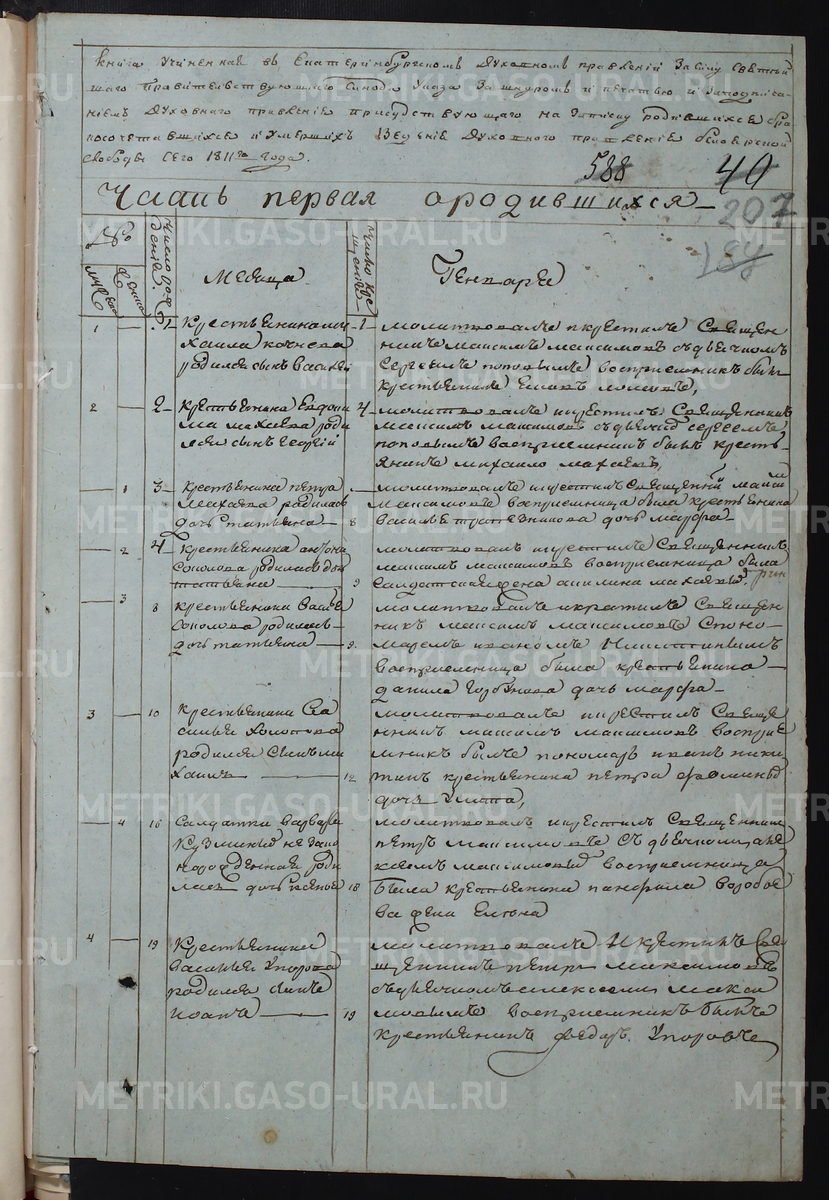 книга учиненная въ Екатеринбургскомъ Духовномъ правленіи
правительствующаго Синода Указа За шнуромъ и печатью и
Духовнаго правленіе присудствующаго на Записку родившихся
и умершихъ Духовного правленіе белоярской
слободы Сего 1811го Года.
588 40
Часть первая ородившихся
207
188
№
число рож
дения
число кре
щения
Месяца
Генваря
1 1 Крестьянина ми
хаила кочнева
родился сынъ Василей
1 молитвовалъ икрестилъ Священ
никъ максимъ максимовъ съдьячкомъ
Сергеемъ поповымъ восприемникъ былъ
крестьянинъ
2 2 Крестьянина Евфи
ма махнева роди
лся сынъ Георгій
4 молитвовалъ икрестилъ Священникъ
максимъ максимовъ съдьячкомъ сергеемъ
поповымъ восприемникъ былъ кресть
янинъ михаило махневъ,
1 3 крестьянина петра
махнева родилась
дочь татьяна
8 молитвовалъ икрестилъ Священникъ максим
максимовъ восприемница была крестьянина
василья трапезникова дочь марфа
2 4 крестьянина антона
Соколова родилась дочь
татьяна
9 молитвовалъ икрестилъ Священникъ
максимъ максимовъ восприемница была
салдатская жена акилина махнева
3 8 крестьянина Василья
Соколова родилась
дочь татьяна
9 молитвовалъ икрестилъ Священ
никъ максимъ максимовъ Споно
маремъ иваномъ Никитинымъ
восприемница была крестьянина
данила Горбунова дочь марфа
3 10 крестьянина Ва
силья Холостова
родился Сынъ ми
хаилъ
12 молитвовалъ икрестилъ Свяще
нникъ максимъ максимовъ восприе
мникъ былъ пономарь иванъ ники
тинъ крестьянина петра
дочь
4 16 Салдатки варвары
Кузминой незако
норожденная роди
лась дочь
18 молитвовалъ икрестилъ Священникъ
петръ максимовъ Съдьячкомъ але
ксеемъ максимовымъ восприемница
была крестьянина панфила воробье
ва жена Елена
4 19 Крестьянина
Василья Упорова
родился сынъ
иоанъ
19 молитвовалъ икрестилъ Свя
щенникъ петръ максимовъ
съдьячкомъ алексеемъ макси
мовымъ восприемникъ былъ
крестьянинъ федоръ Упоровъ
METRIKI.GASO-URAL.RU